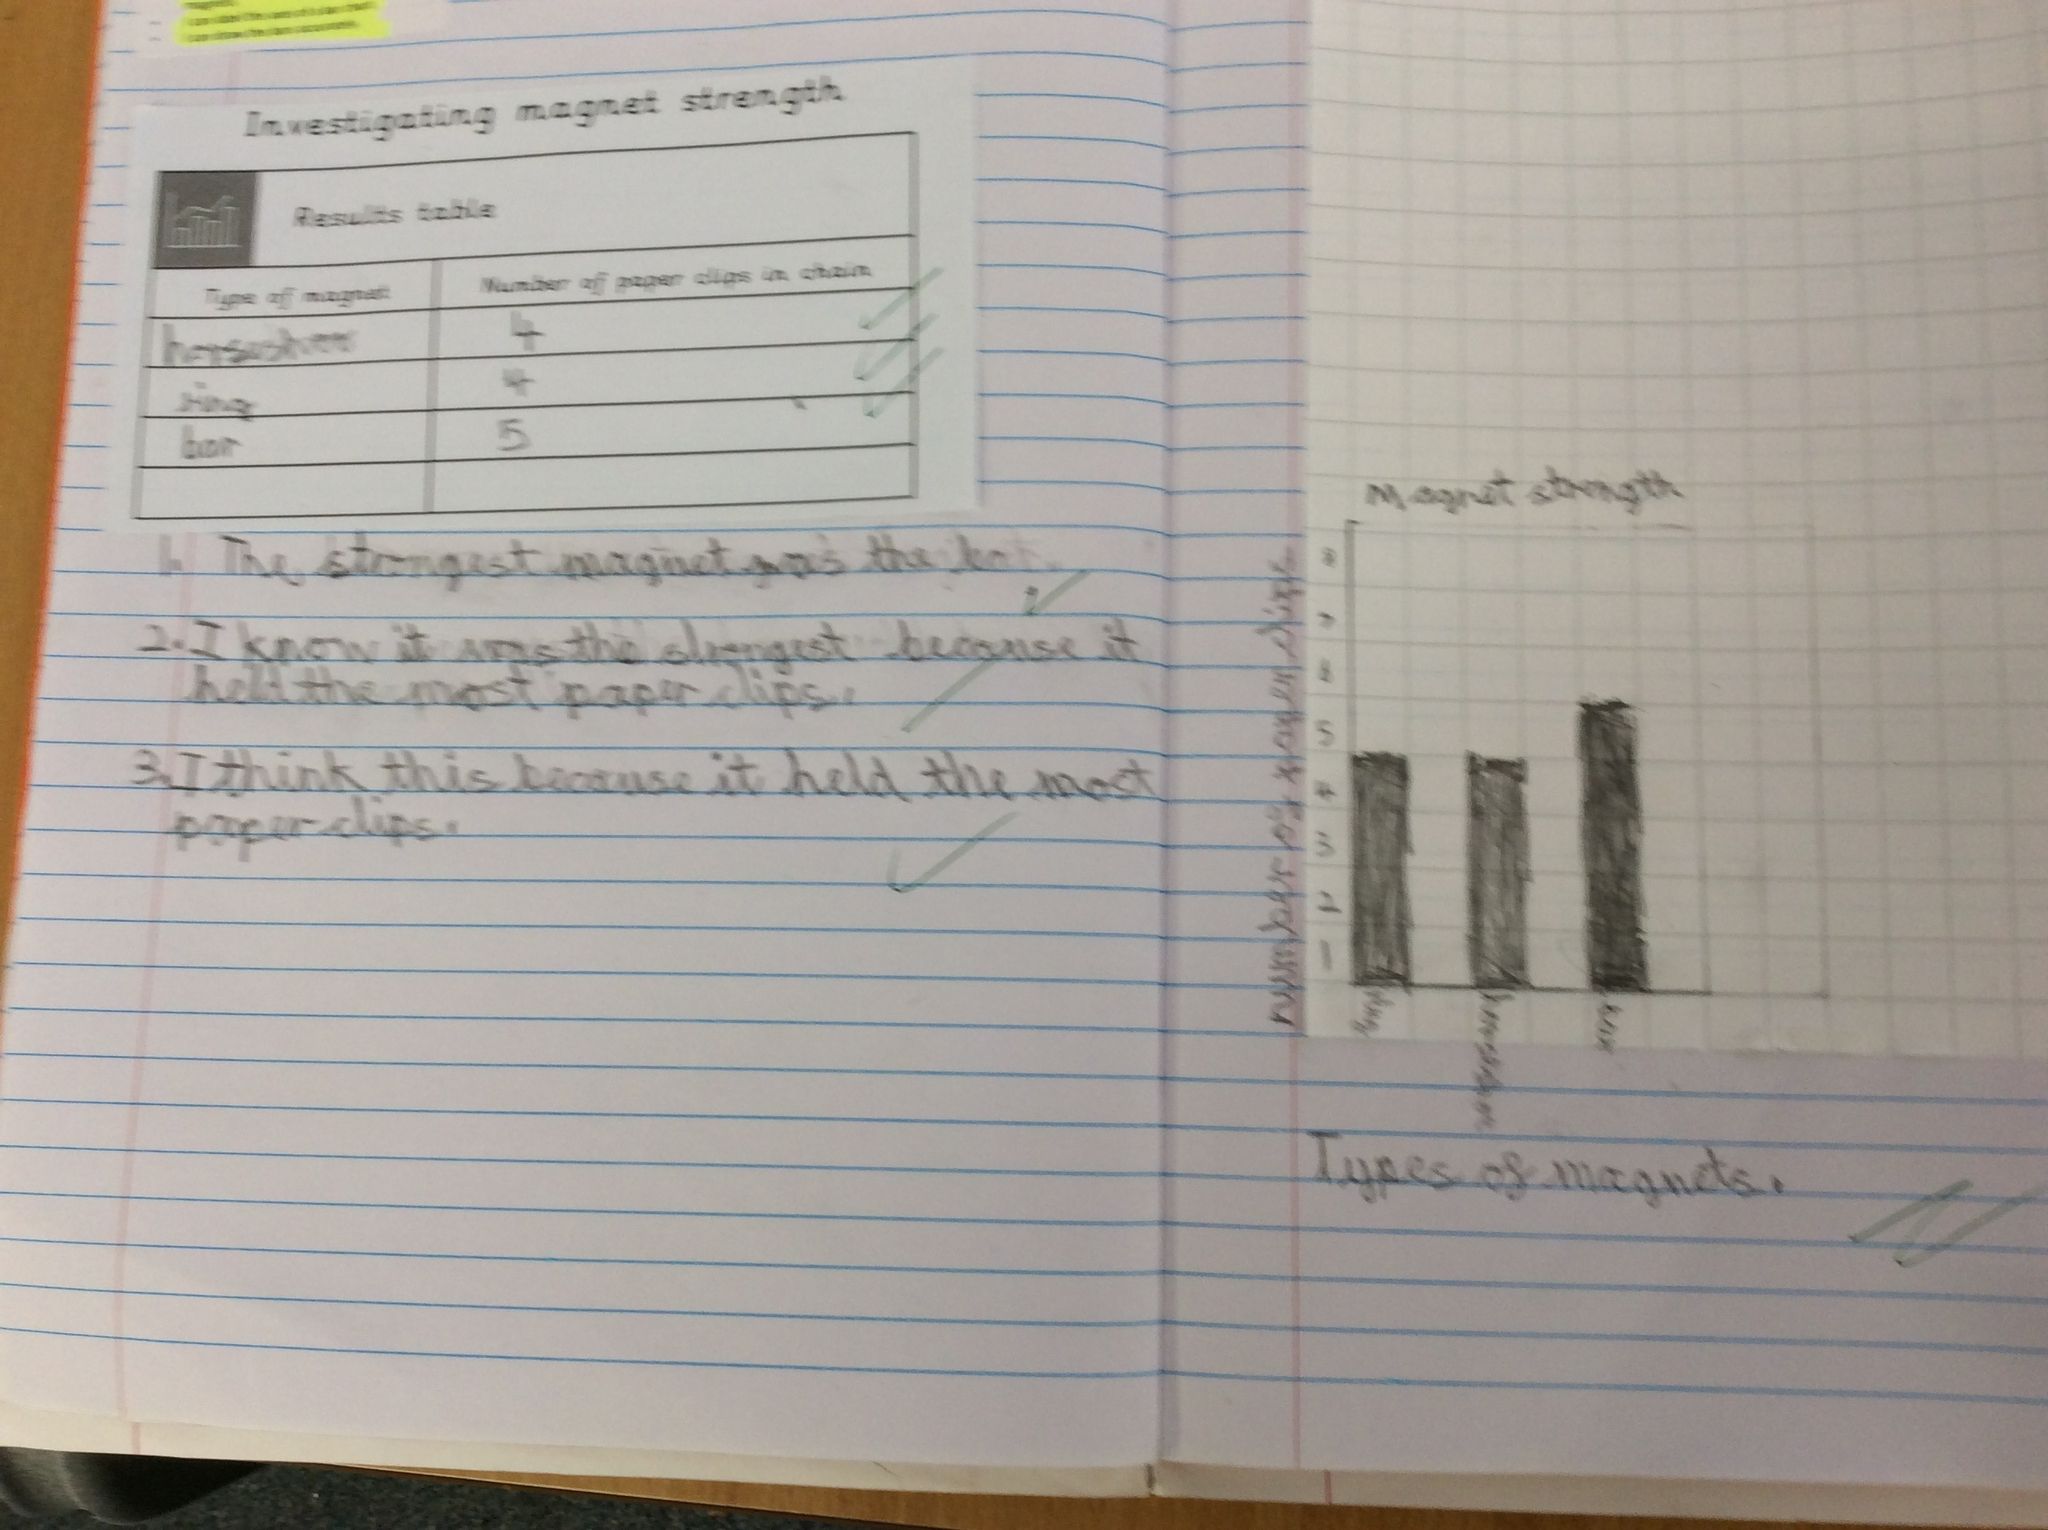 Investigating magnet strength
Results table
Type of magnet Number of paper clips in chain
horseshoe 4
ring 4
bar 5
1. The strongest magnet was the
2. I know it was the strongest because it
held the most paper clips.
3. I think this because it held the most
paper clips.
Magnet strength
8
7
6
5
4
3
2
1
Number of paper clips
ring horseshoe bar
Types of magnets.